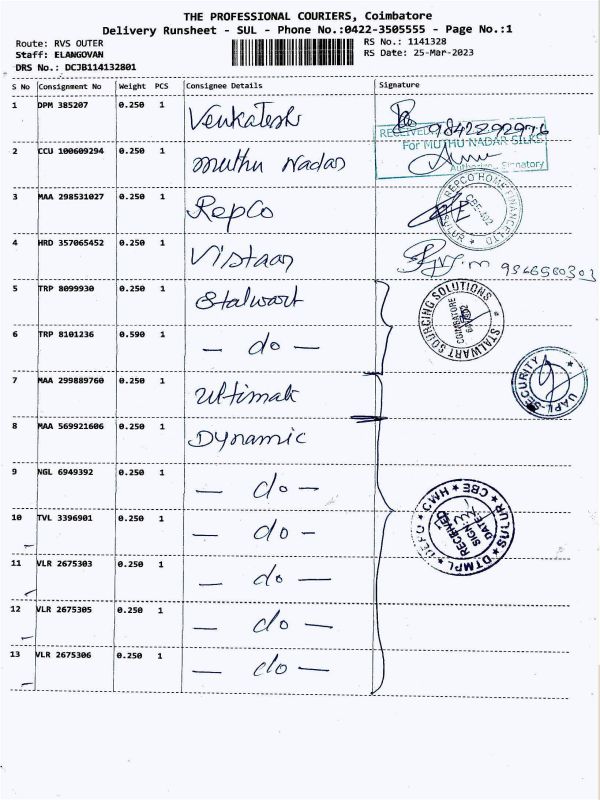 THE PROFESSIONAL COURIERS, Coimbatore
Delivery Runsheet - SUL - Phone No.:0422-3505555 - Page No.:1
Route: RVS OUTER
Staff: ELANGOVAN
DRS No.: DCJB114132801
RS No.: 1141328
RS Date: 25-Mar-2023
S No Consignment No Weight PCS Consignee Details Signature
1 DPM 385207 0.250 1 Venkatesh 9842292976
RECEIVED
For MUTHU NADAR SILKS
2 CCU 100609294 0.250 1 muthu Nadar
Authorise Signatory
3 MAA 298531027 0.250 1 RepCo
REPCO HOME FINANCE LTD SULUR CBE-402
4 HRD 357065452 0.250 1 Vistaar
5 TRP 8099930 0.250 1 Stalwart
STALWART SOURCING SOLUTIONS COIMBATORE
6 TRP 8101236 0.590 1 - do -
7 MAA 299889760 0.250 1 Ultimate
UAPL-SECURITY
8 MAA 569921606 0.250 1 DYnamic
9 NGL 6949392 0.250 1 - do -
DTMPL SULUR CBE HWH DEPO
RECEIVED
SIGN
DATE
10 TVL 3396901 0.250 1 - do -
11 VLR 2675303 0.250 1 - do -
12 VLR 2675305 0.250 1 - do -
13 VLR 2675306 0.250 1 - do -